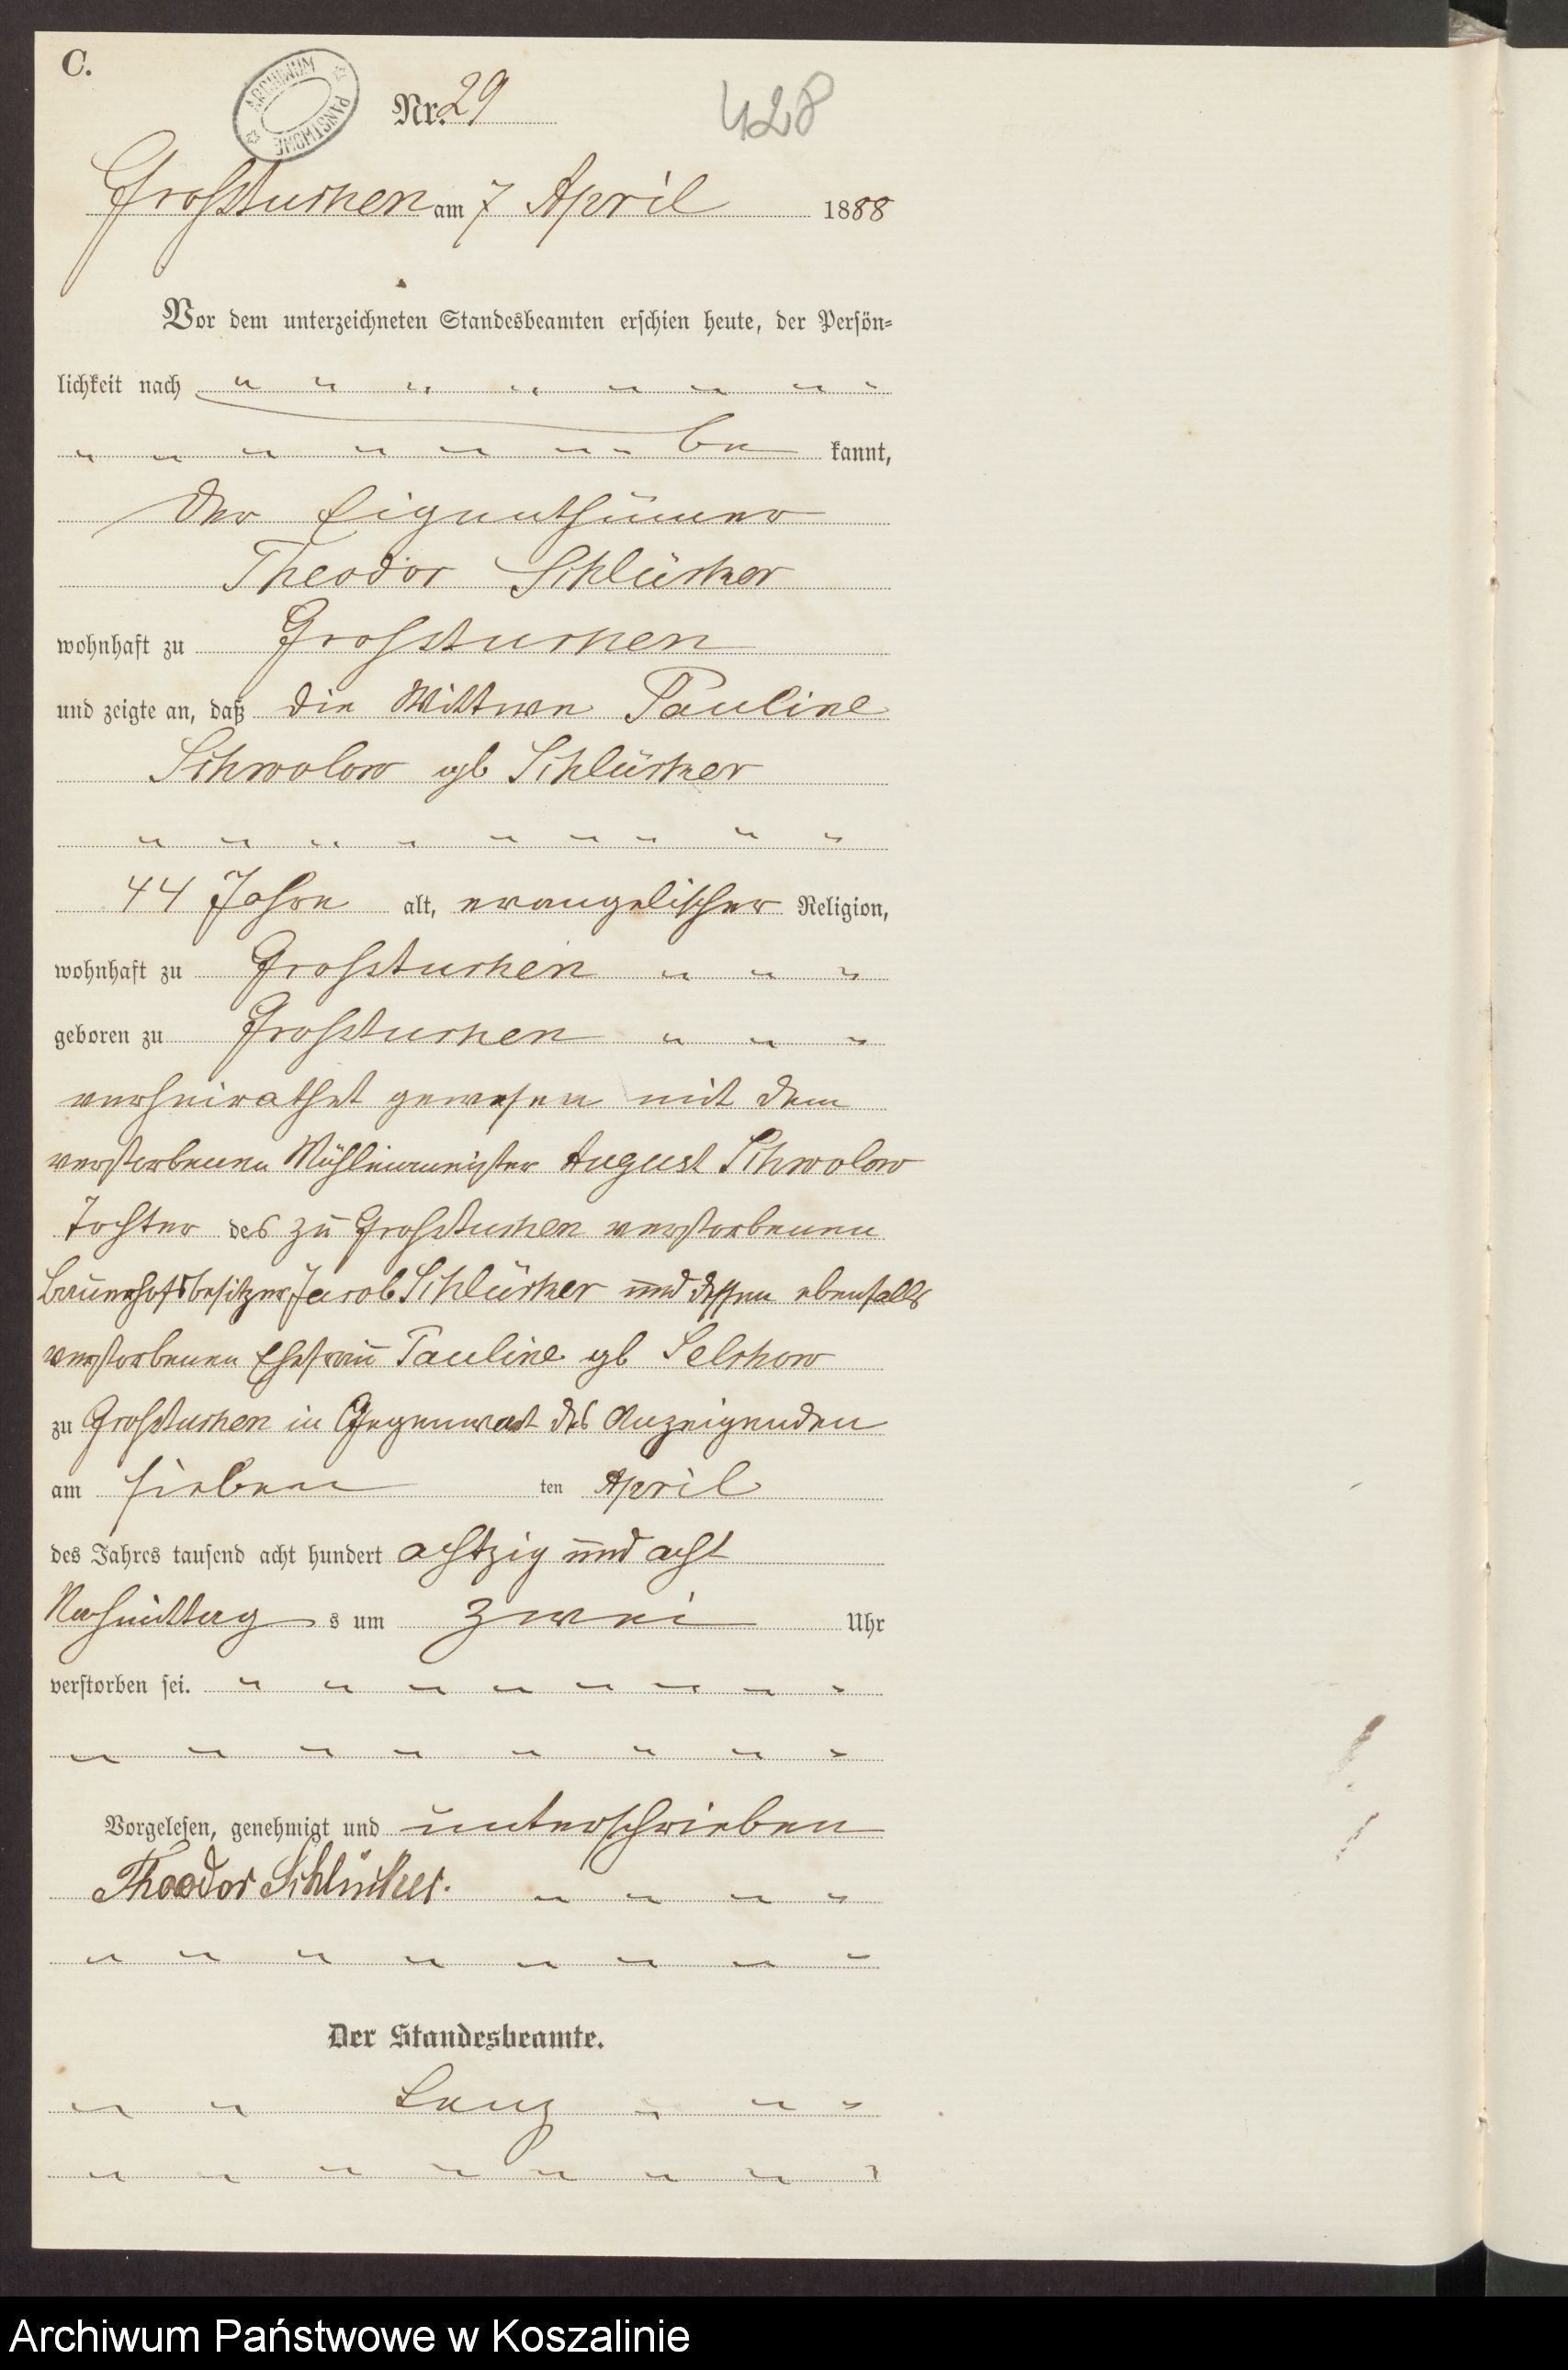 C.
ARCHIWUM PAŃSTWOWE
Nr. 29
428
Großtuchen am 7 April 1888
Vor dem unterzeichneten Standesbeamten erschien heute, der Persön=
lichkeit nach " " " " " " " "
" " " " " " " be kannt,
der Eigenthümer
Theodor Schlücker
wohnhaft zu Großtuchen
und zeigte an, daß die Wittwe Pauline
Schwolow gb Schlücker
" " " " " " " " "
44 Jahre alt, evangelischer Religion,
wohnhaft zu Großtuchen " " "
geboren zu Großtuchen " " "
verheirathet gewesen mit dem
verstorbenen Mühlenmeister August Schwolow
Tochter des zu Großtuchen verstorbenen
Bauerhofsbesitzer Jacob Schlücker und dessen ebenfalls
verstorbenen Ehefrau Pauline gb Selchow
zu Großtuchen in Gegenwart des Anzeigenden
am sieben ten April
des Jahres tausend acht hundert achtzig und acht
Nachmittag s um zwei Uhr
verstorben sei. " " " " " " " "
" " " " " " " "
Vorgelesen, genehmigt und unterschrieben
Theodor Schlücker. " " " "
" " " " " " " "
Der Standesbeamte.
" " Lenz " " "
" " " " " " " "
Archiwum Państwowe w Koszalinie